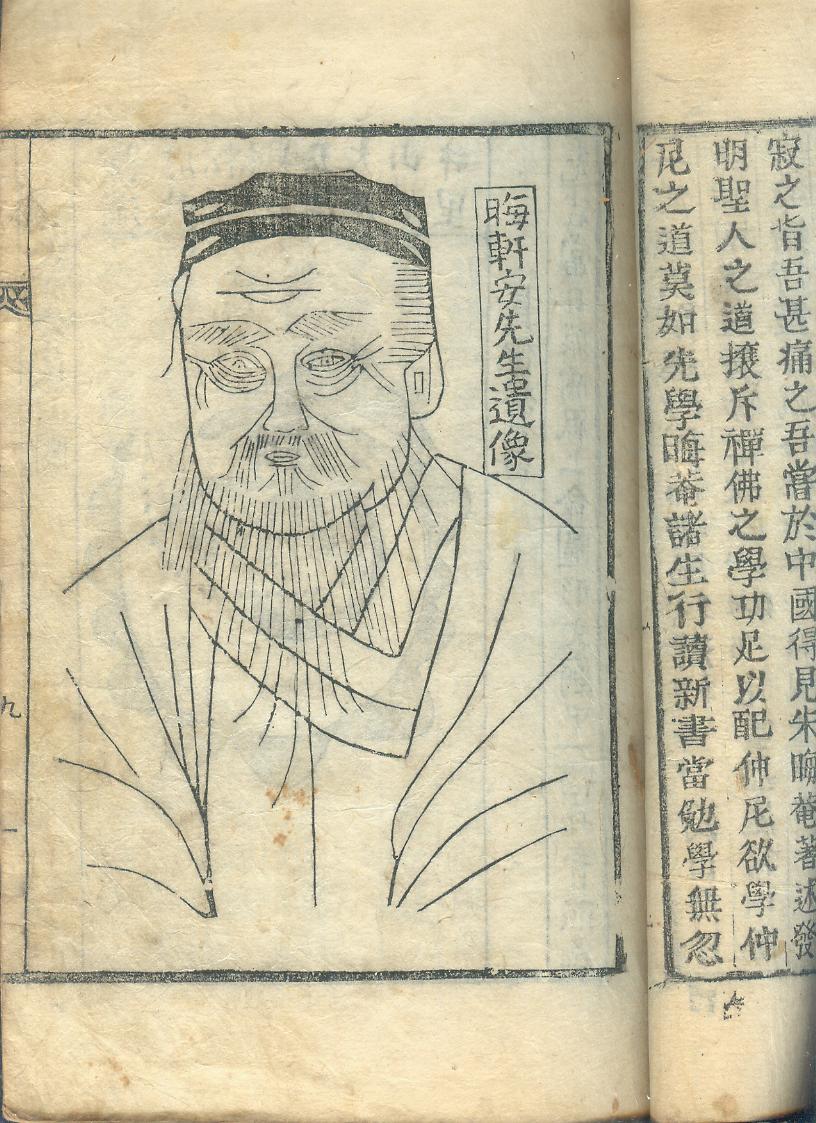 寂之皆吾甚痛之吾嘗於中國得見朱晦菴著述發
明聖人之道攘斥禪佛之學功足以配仲尼欲學仲
尼之道莫如先學晦菴諸生行讀新書當勉學無忽
晦軒安先生遺像
九
一